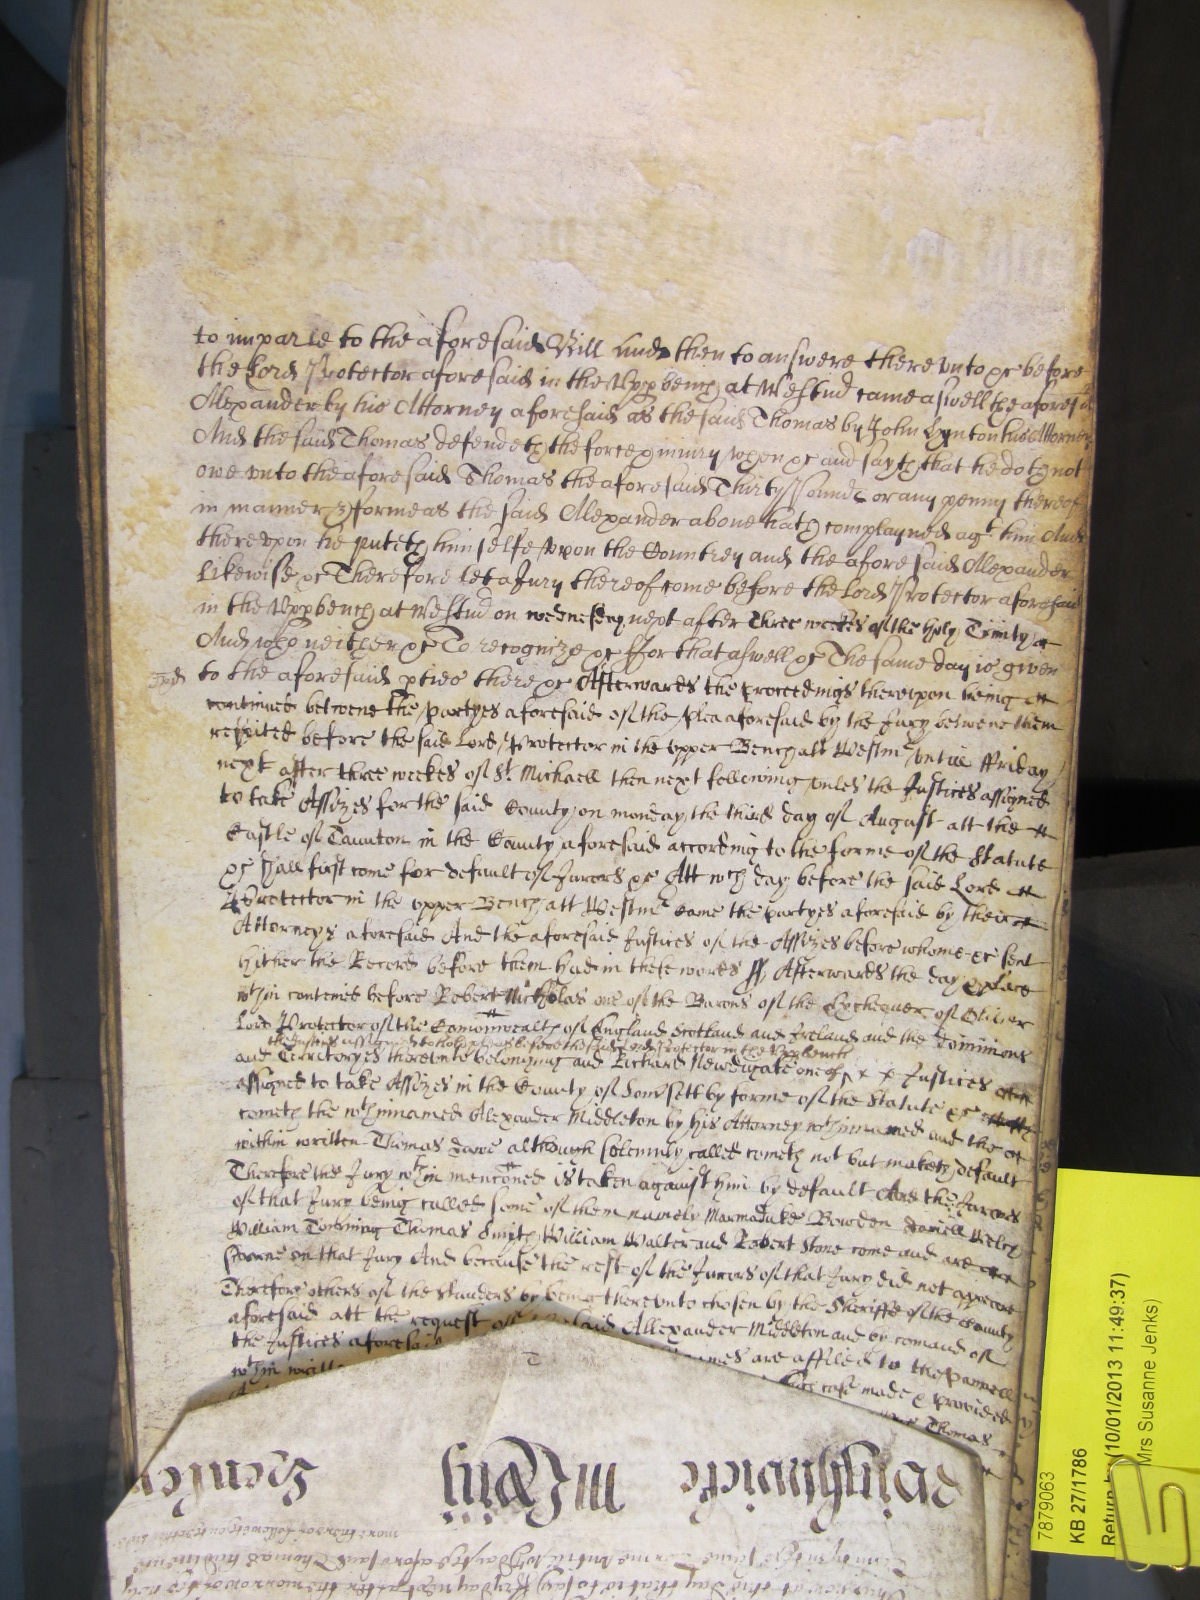 to imparle to the aforesaid Bill And then to answere there vnto &c before
the Lord Protector aforesaid in the Vpp bench at Westm̃ came aswell the aforesd
Alexander by his Attorney aforesaid as the said Thomas by John Lynton his Attorney
And the said Thomas defendeth the force & iniury when &c and sayth that he doth not
owe vnto the aforesaid Thomas the aforesaid Thirty Pounds or any penny thereof
in manner & forme as the said Alexander aboue hath complayned agt him And
therevpon he puteth himselfe vpon the Countrey and the aforesaid Alexander
Likewise &c Therefore let a Jury thereof come before the Lord Protector aforesaid
in the Vpp bench at Westm̃ on wednesday next after Three weekes of the holy Trinity
And who neither &c To recognize &c ffor that aswell &c The same day is given
to the aforesaid pties there &c Afterwards the proceedings therevpon being
continued betweene the partyes aforesaid of the plea aforesaid by the Jury betweene them
respited before the said Lord Protector in the vpper Bench att Westmr vntill ffriday
next after three weekes of St Michaell then next following vnles the Justices assigned
to take Assizes for the said County on monday the third day of August att the
Castle of Taunton in the County aforesaid according to the forme of the Statute
&c shall first come for default of Jurors &c Att wch day before the said Lord
Protector in the vpper Bench att Westmr came the partyes aforesaid by their
Attorneys aforesaid And the aforesaid Justices of the Assizes before whome &c sent
hither the Record before them had in these words ss Afterwards the day & place
wthin conteined before Robert Nicholas one of the Barons of the Exchequer of Oliver
Lord Protector of the Comonwealth of England Scotland and Ireland and the Dominions
the Justices assigned to hold pleas before the said Lord Protector in the Vpp bench
and Territoryes therevnto belonging and Richard Newdigate one of x x Justices
assigned to take Assizes in the County of Somsett by forme of the Statute &c
cometh the wthinnamed Alexander Middleton by his Attorney wthinnamed and the
within written Thomas although solemnly called cometh not but maketh default
Therefore the Jury wthin menconed is taken against him by default And the Jurors
of that Jury being called some of them namely Marmaduke Bowden Daniell Welch
William Thomas Smyth William Walter and Robert Stone come and are
sworne on that Jury And because the rest of the Jurors of that Jury did not appeare
Therefore others of the standers by being therevnto chosen by the Sheriffe of the County
aforesaid att the request of said Allexander Middleton and by comand of
the Justices aforesaid names are affiled to the pannell
wthin writt case made & provided
Thomas
7879063
KB 27/1786
Return (10/01/2013 11:49:37)
Mrs Susanne Jenks)